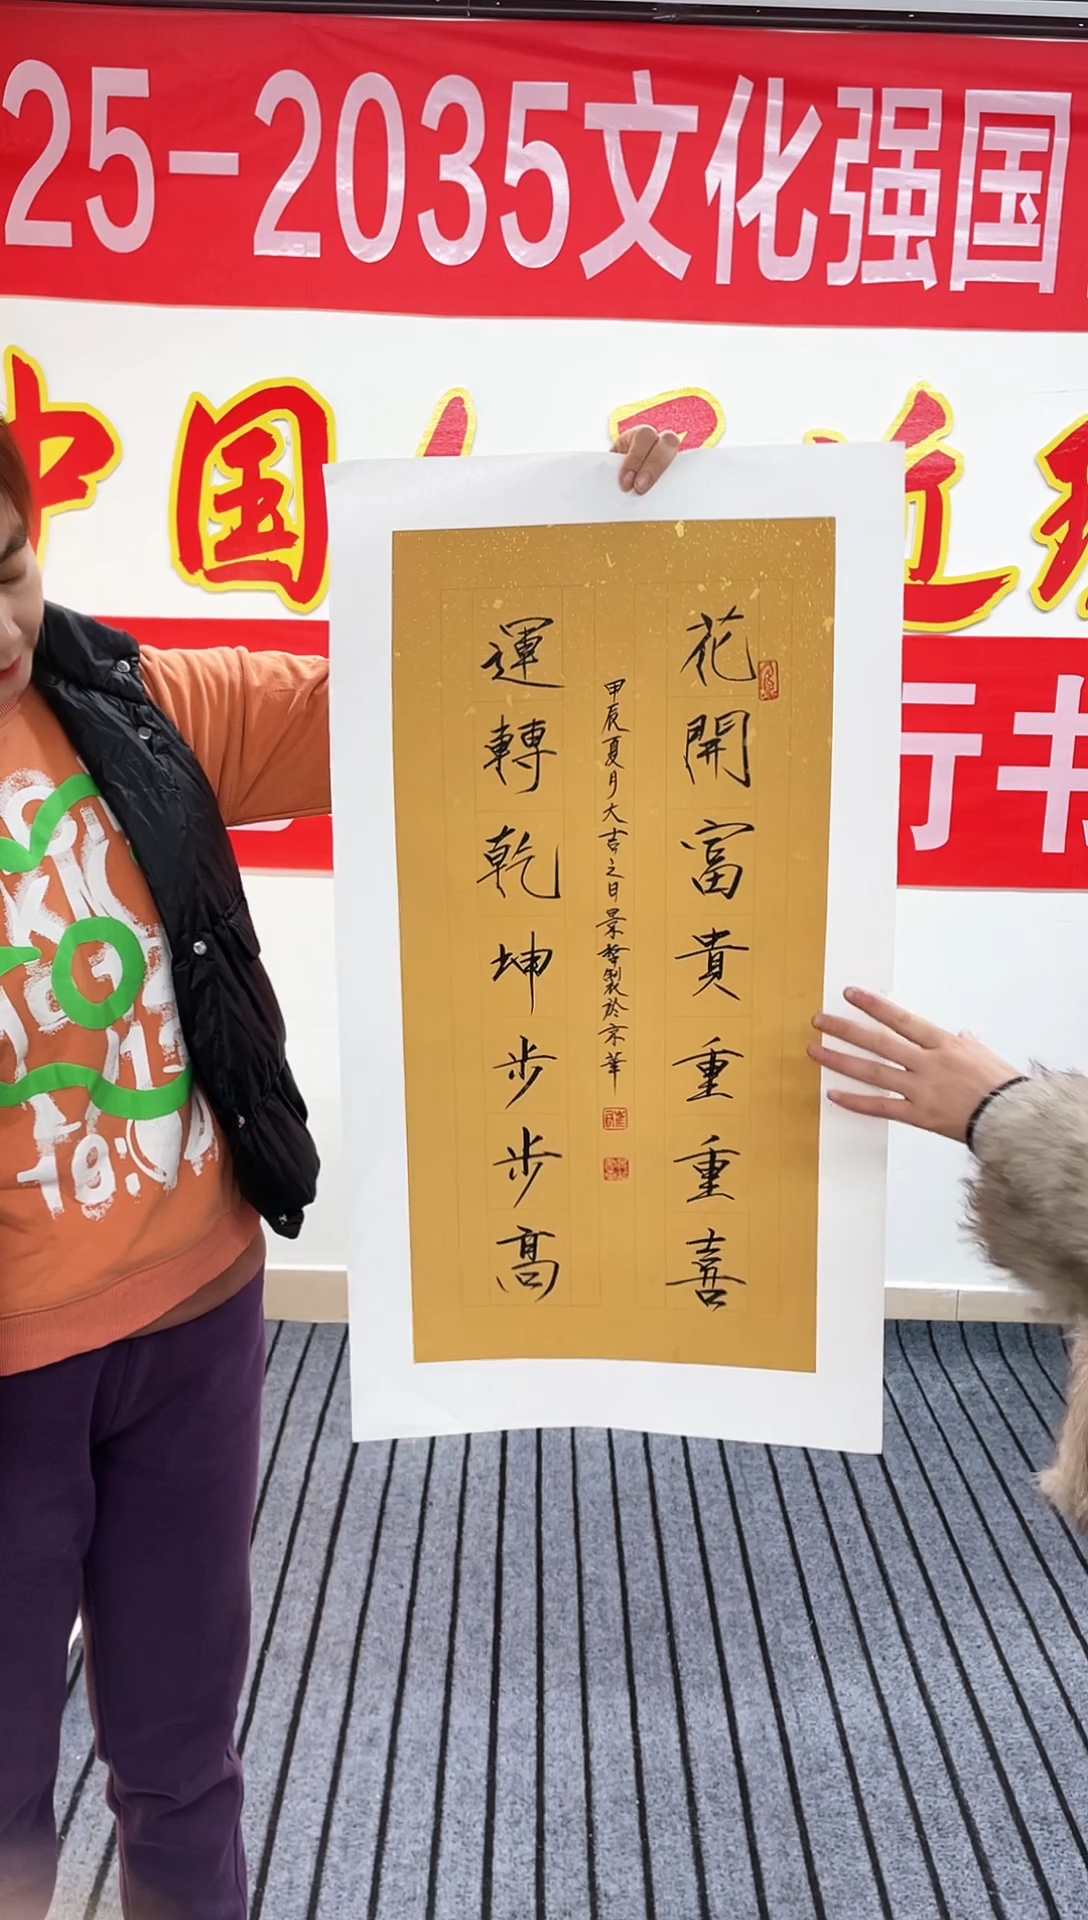 25-2035文化强国
中国
近
行书
花開富貴重重喜
甲辰夏月大吉之日景
製於京華
運轉乾坤步步高